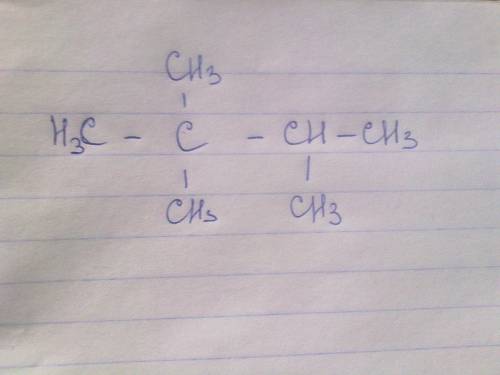 CH3
H3C - C - CH - CH3
CH3 CH3